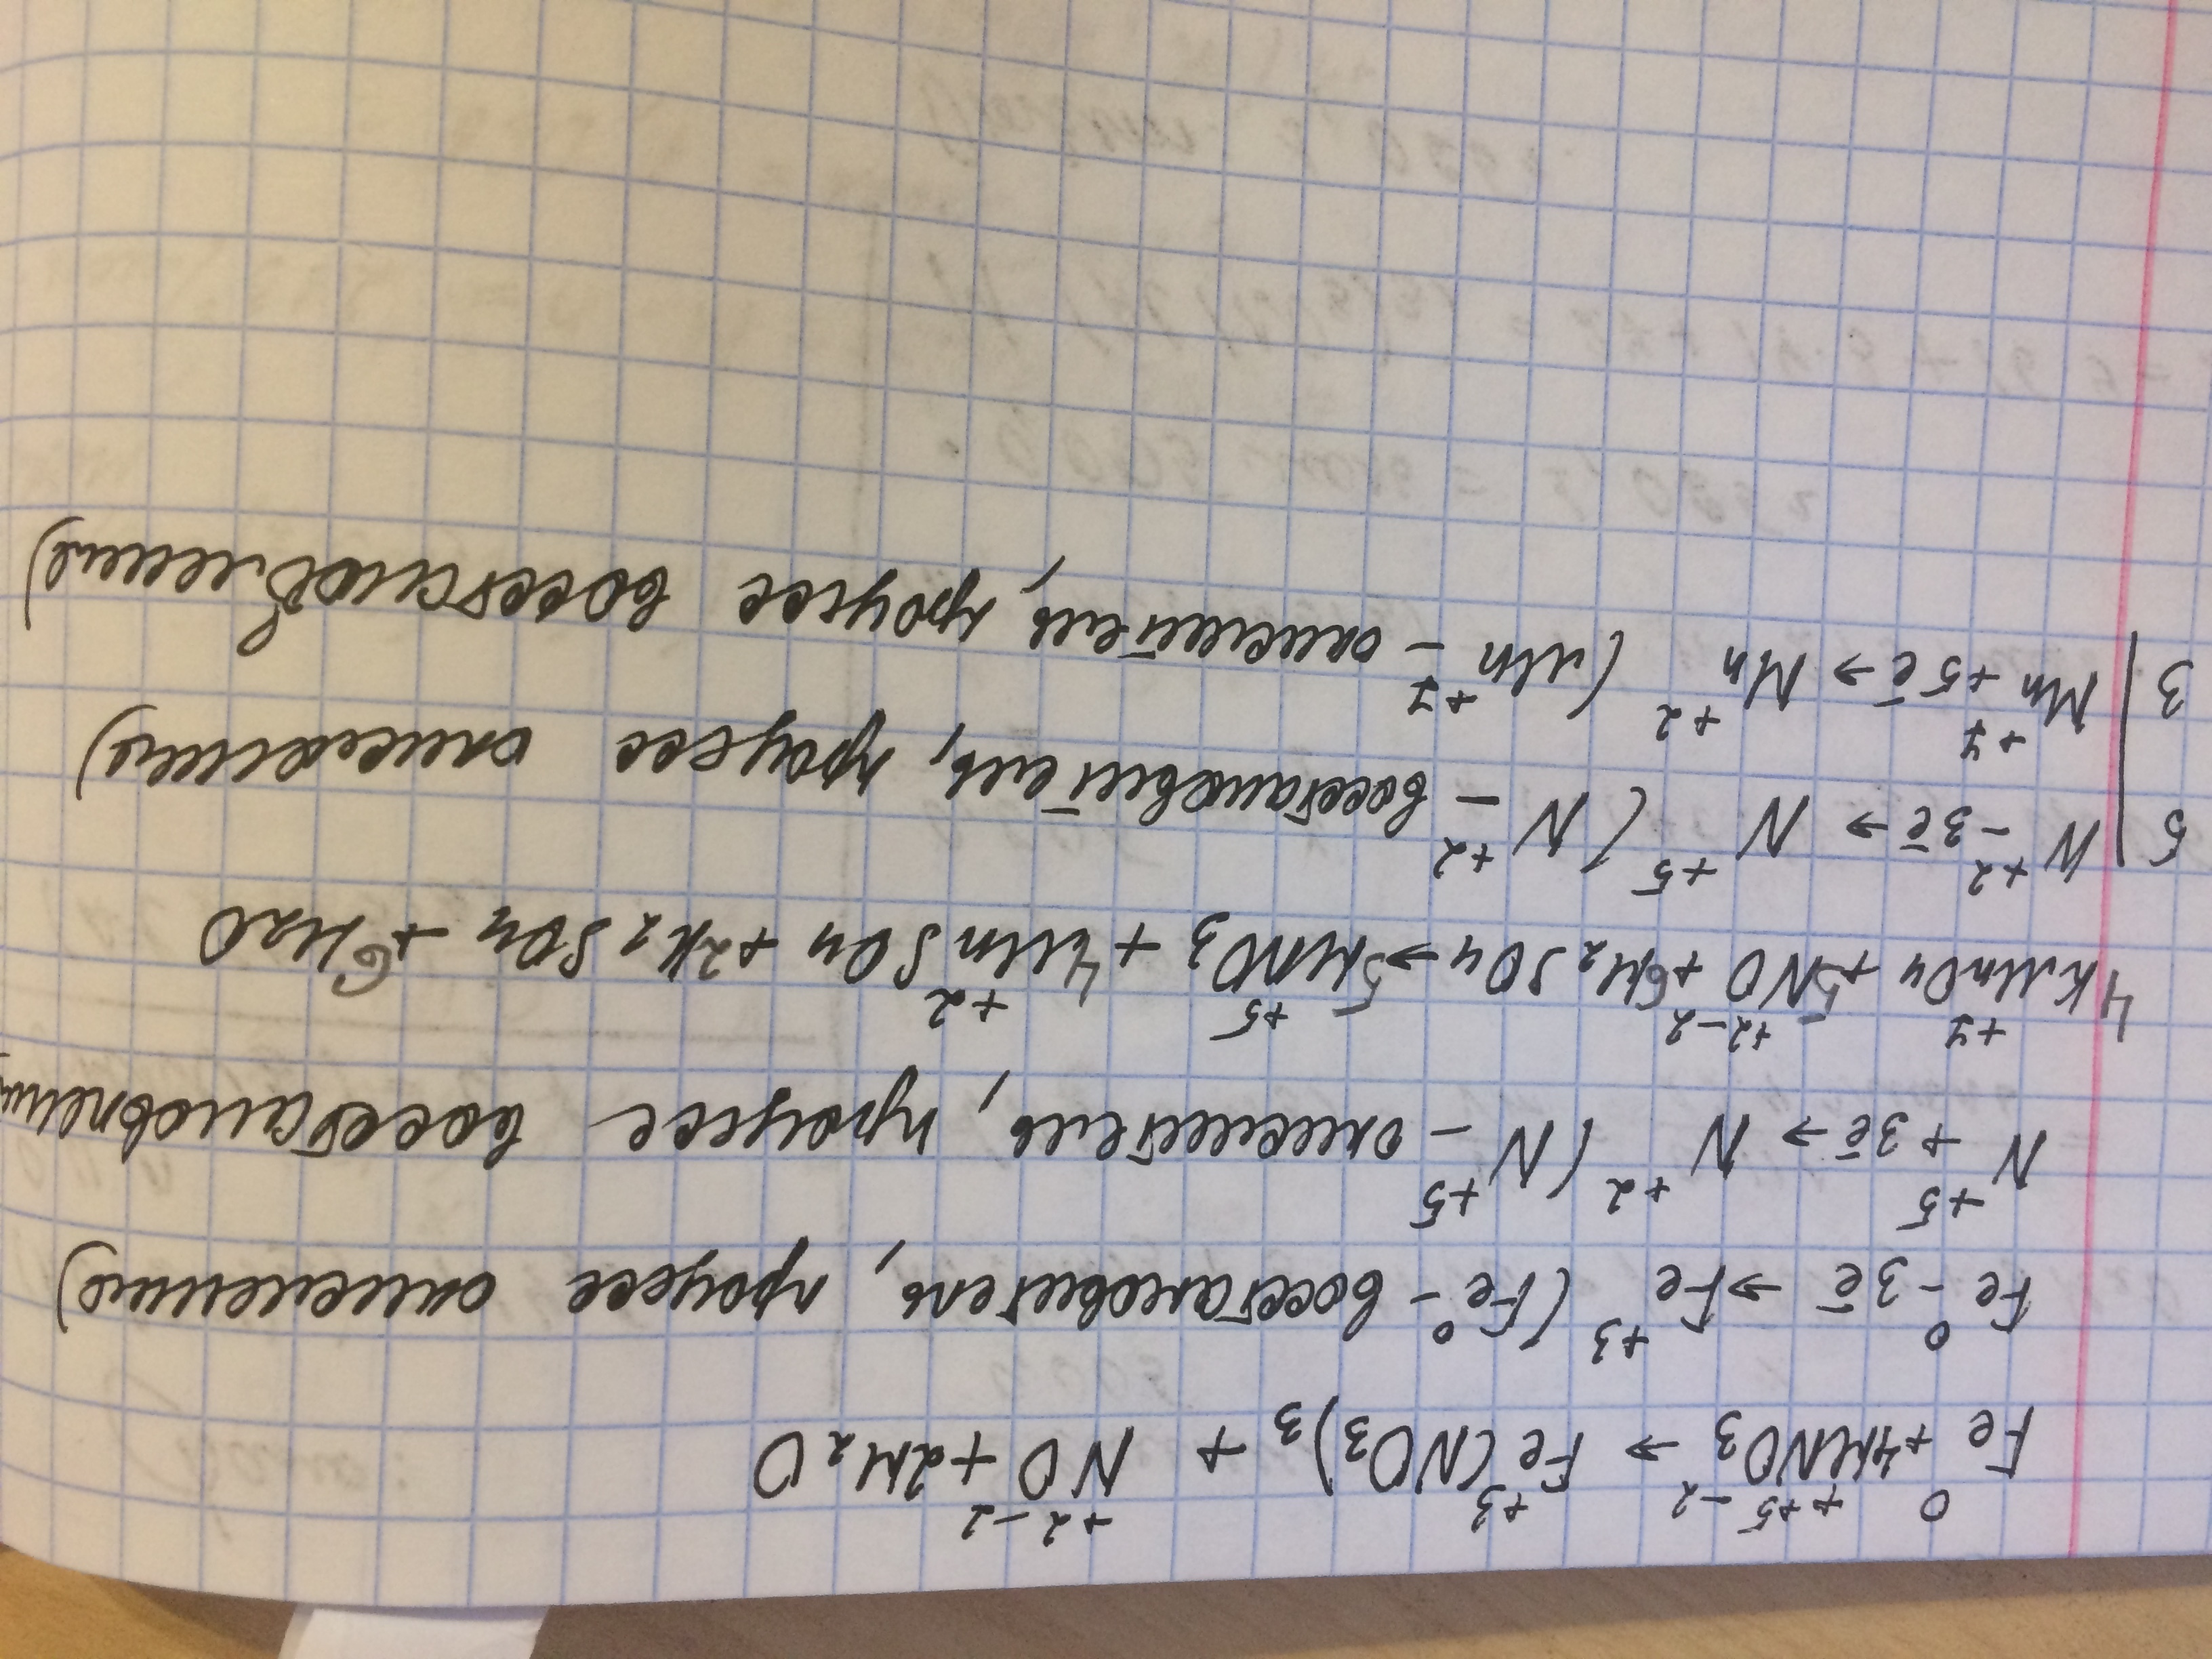 Fe⁰ + 4H⁺N⁺⁵O₃⁻² → Fe⁺³(NO₃)₃ + N⁺²O⁻² + 2H₂O
Fe⁰ - 3ē → Fe⁺³ (Fe⁰ - восстановитель, процесс окисления)
N⁺⁵ + 3ē → N⁺² (N⁺⁵ - окислитель, процесс восстановления
4KMn⁺⁷O₄ + 5N⁺²O⁻² + 6H₂SO₄ → 5HN⁺⁵O₃ + 4Mn⁺²SO₄ + 2K₂SO₄ + 6H₂O
5 | N⁺² - 3ē → N⁺⁵ (N⁺² - восстановитель, процесс окисления)
3 | Mn⁺⁷ + 5ē → Mn⁺² (Mn⁺⁷ - окислитель, процесс восстановления)